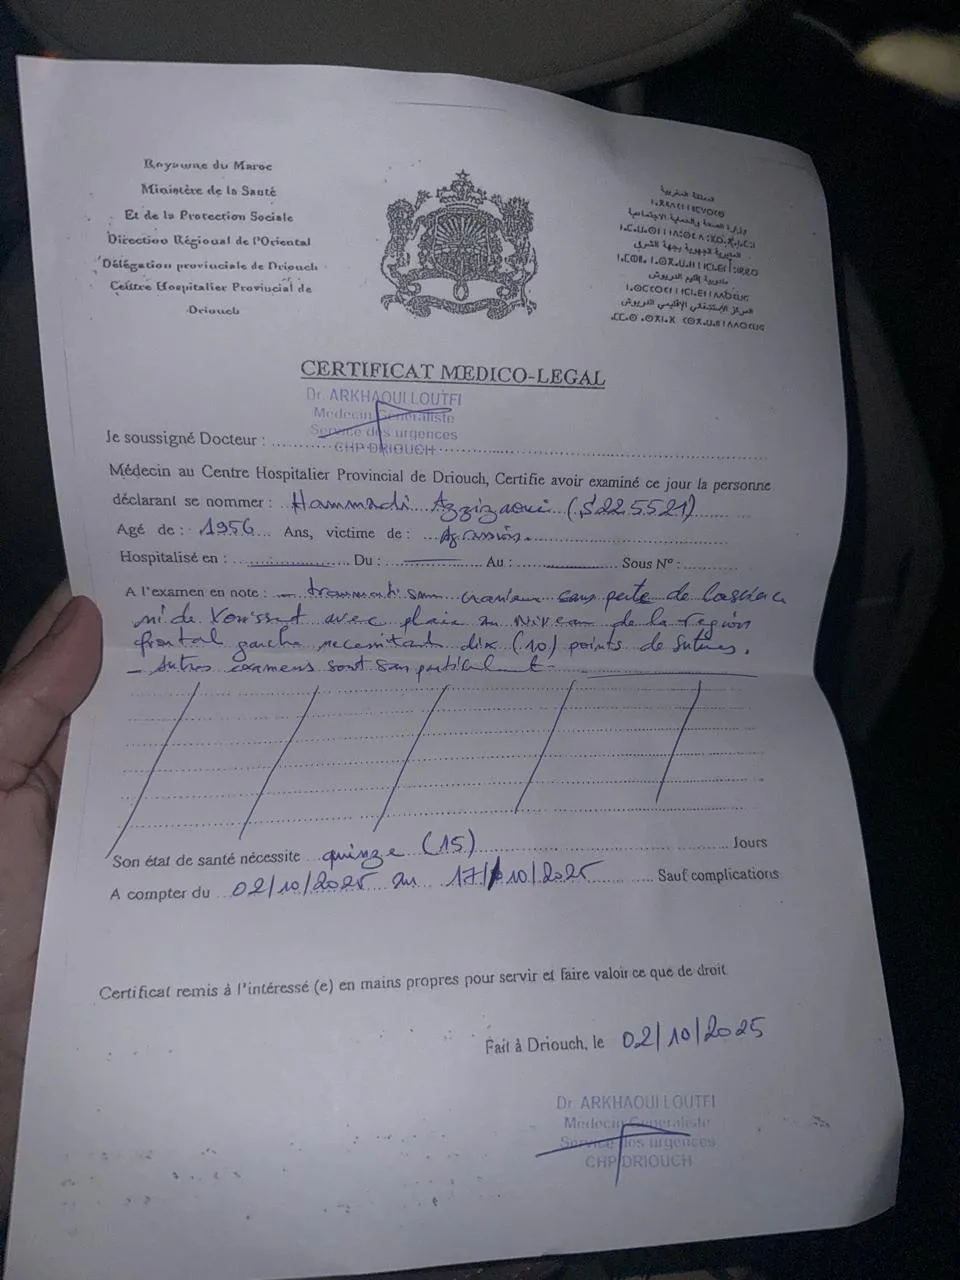 Royaume du Maroc
Ministère de la Santé
Et de la Protection Sociale
Direction Régional de l'Oriental
Délégation provinciale de Driouch
Centre Hospitalier Provincial de
Driouch
المملكة المغربية
وزارة الصحة والحماية الاجتماعية
المديرية الجهوية بجهة الشرق
مندوبية إقليم الدريوش
المركز الاستشفائي الإقليمي الدريوش
CERTIFICAT MEDICO-LEGAL
Dr. ARKHAOUI LOUTFI
Medecin Generaliste
Service des urgences
CHP DRIOUCH
Je soussigné Docteur :
Médecin au Centre Hospitalier Provincial de Driouch, Certifie avoir examiné ce jour la personne
déclarant se nommer : Hammadi Azzizaoui (S225521)
Agé de : 1956 Ans, victime de : Agression
Hospitalisé en : Du : Au : Sous N° :
A l'examen en note : - traumatisme cranien sans perte de
ni de avec plaie au niveau de la region
frontal gauche necessitant dix (10) points de sutures.
- Autres examens sont sans
Son état de santé nécessite quinze (15) Jours
A compter du 02/10/2025 au 17/10/2025 Sauf complications
Certificat remis à l'intéressé (e) en mains propres pour servir et faire valoir ce que de droit
Fait à Driouch, le 02/10/2025
Dr. ARKHAOUI LOUTFI
Medecin Generaliste
Service des urgences
CHP DRIOUCH